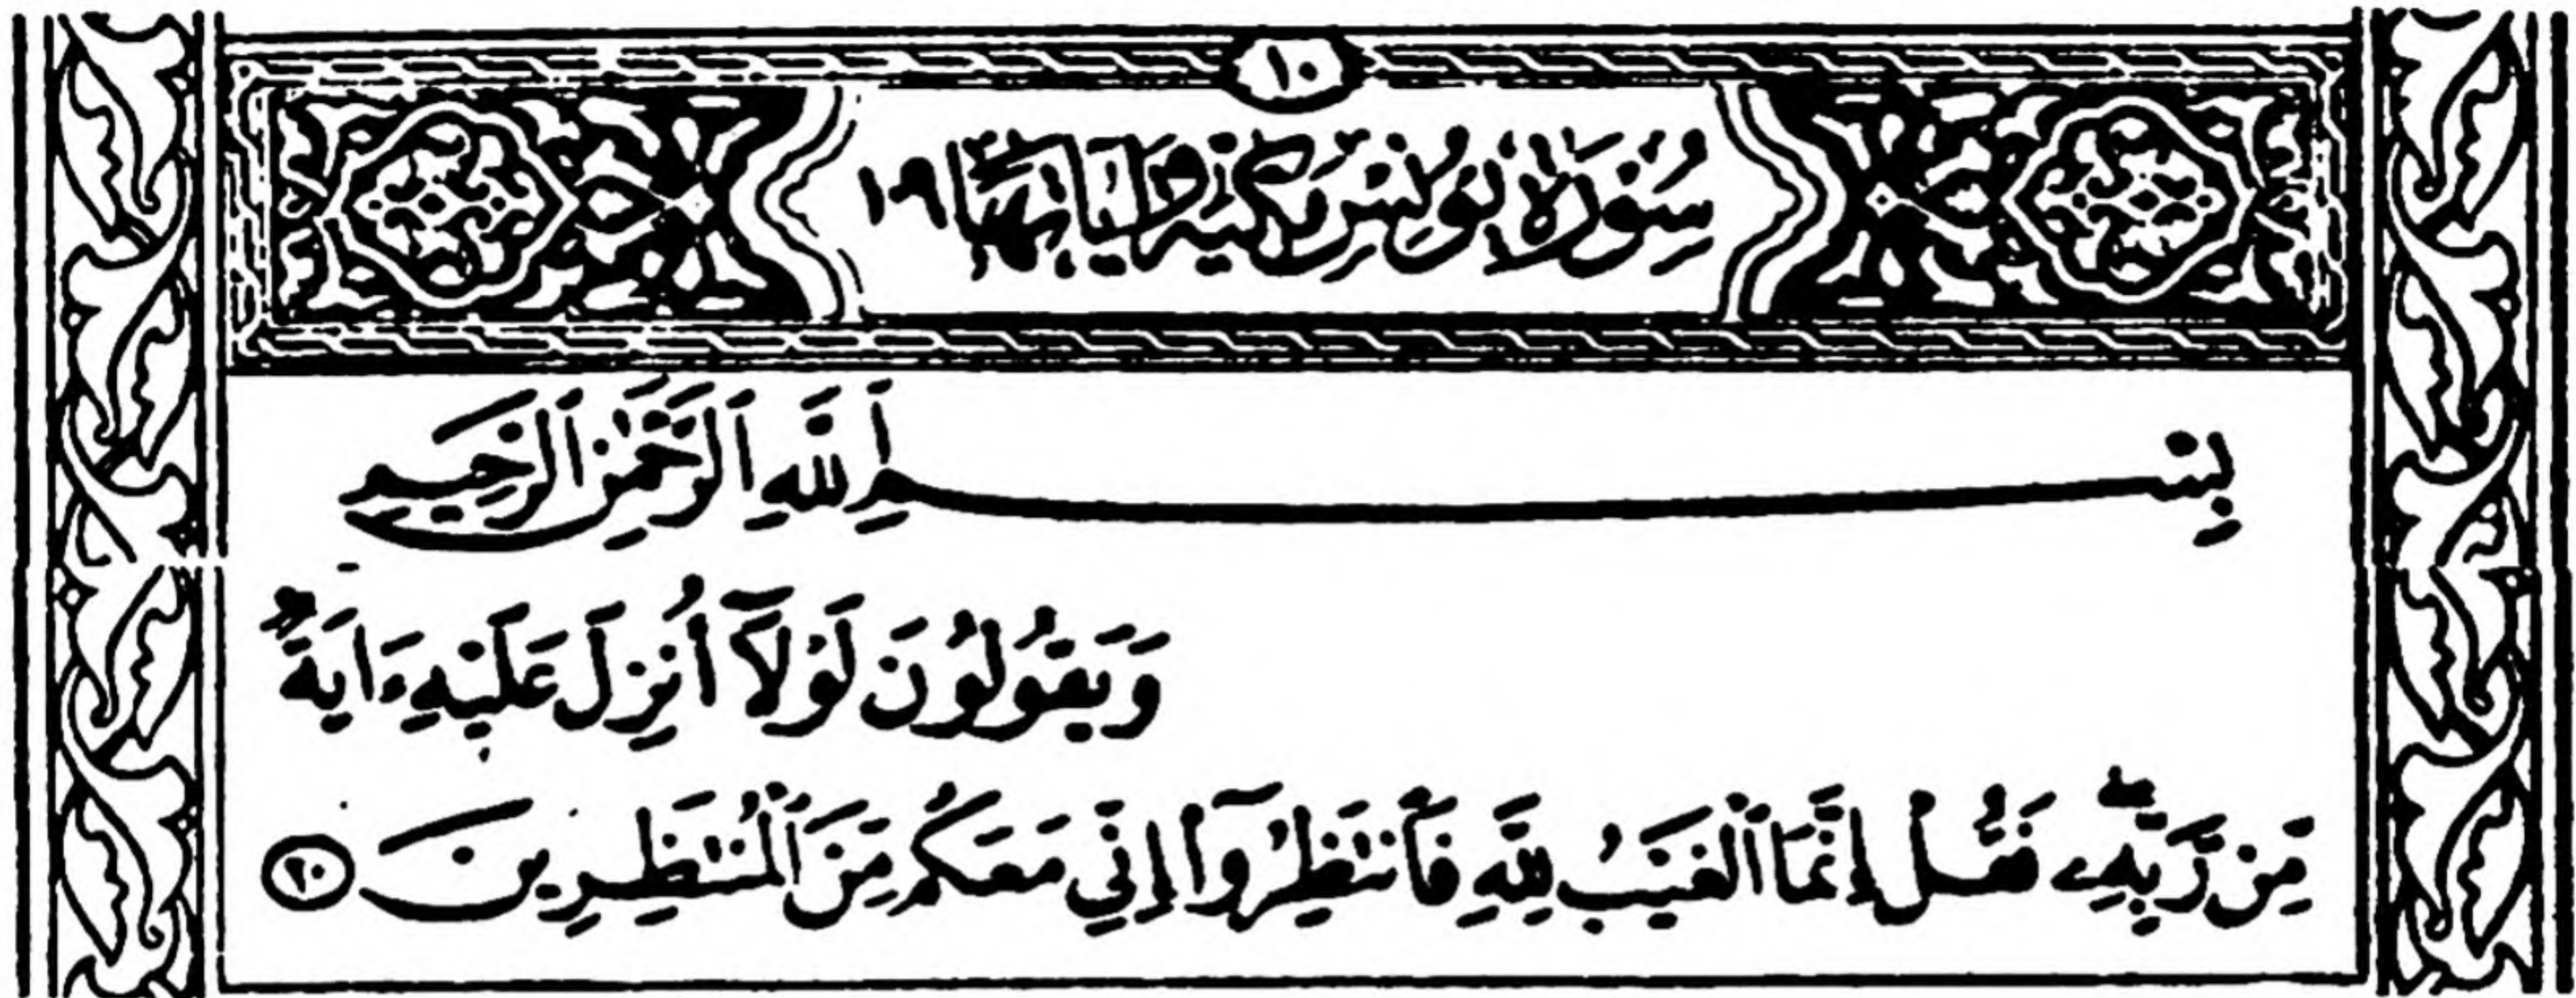 ١٠
سُورَةُ يُونُسَ مَكِّيَّة وَآيَاتُهَا ١٠٩
بِسْمِ ٱللَّهِ ٱلرَّحْمَٰنِ ٱلرَّحِيمِ
وَيَقُولُونَ لَوْلَآ أُنزِلَ عَلَيْهِ ءَايَةٌ
مِّن رَّبِّهِۦ فَقُلْ إِنَّمَا ٱلْغَيْبُ لِلَّهِ فَٱنتَظِرُوٓا۟ إِنِّي مَعَكُم مِّنَ ٱلْمُنتَظِرِينَ ٢٠